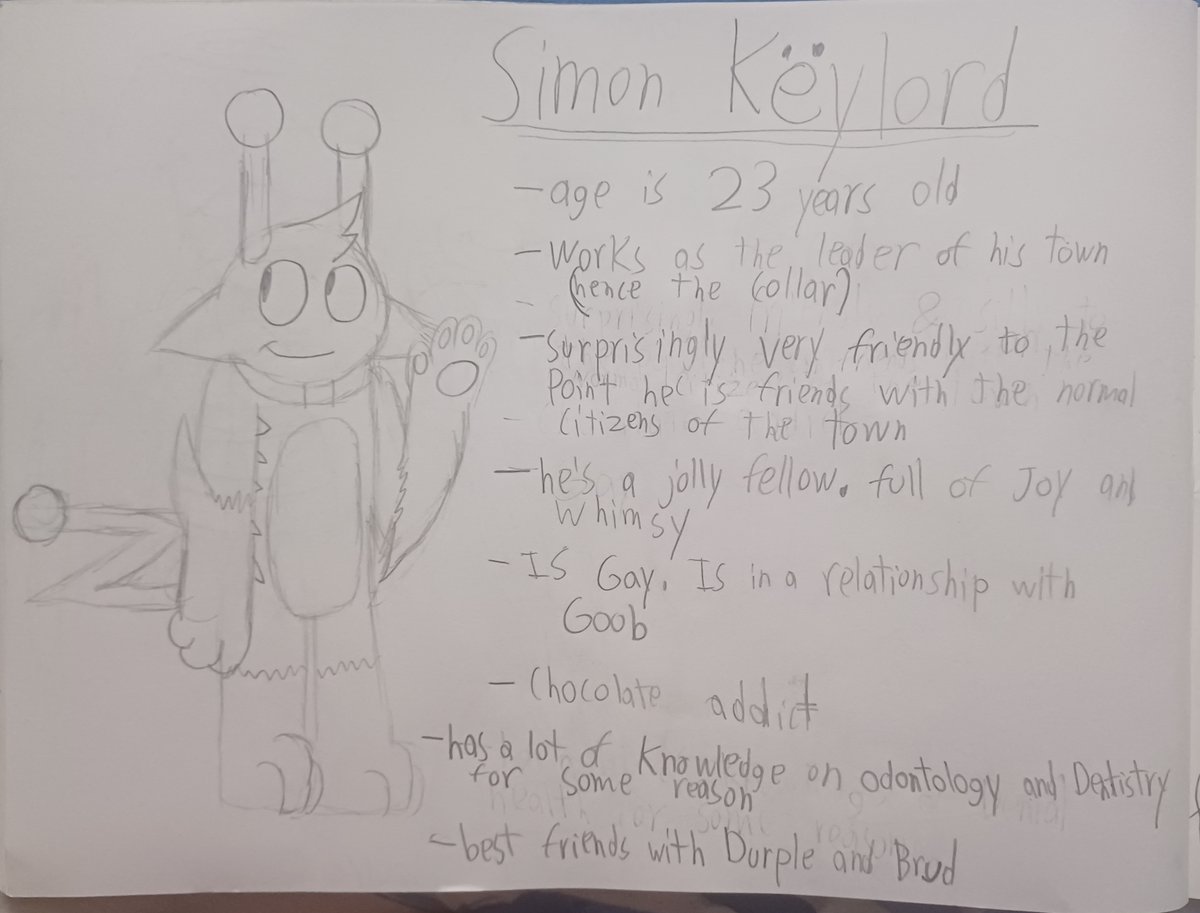 Simon Këylord
- age is 23 years old
- Works as the leader of his town
(hence the collar)
- Surprisingly very friendly to the
point he is friends with the normal
citizens of the town
- he's a jolly fellow. full of Joy and
whimsy
- Is Gay. Is in a relationship with
Goob
- Chocolate addict
- has a lot of knowledge on odontology and Dentistry
for some reason
- best friends with Durple and Brud